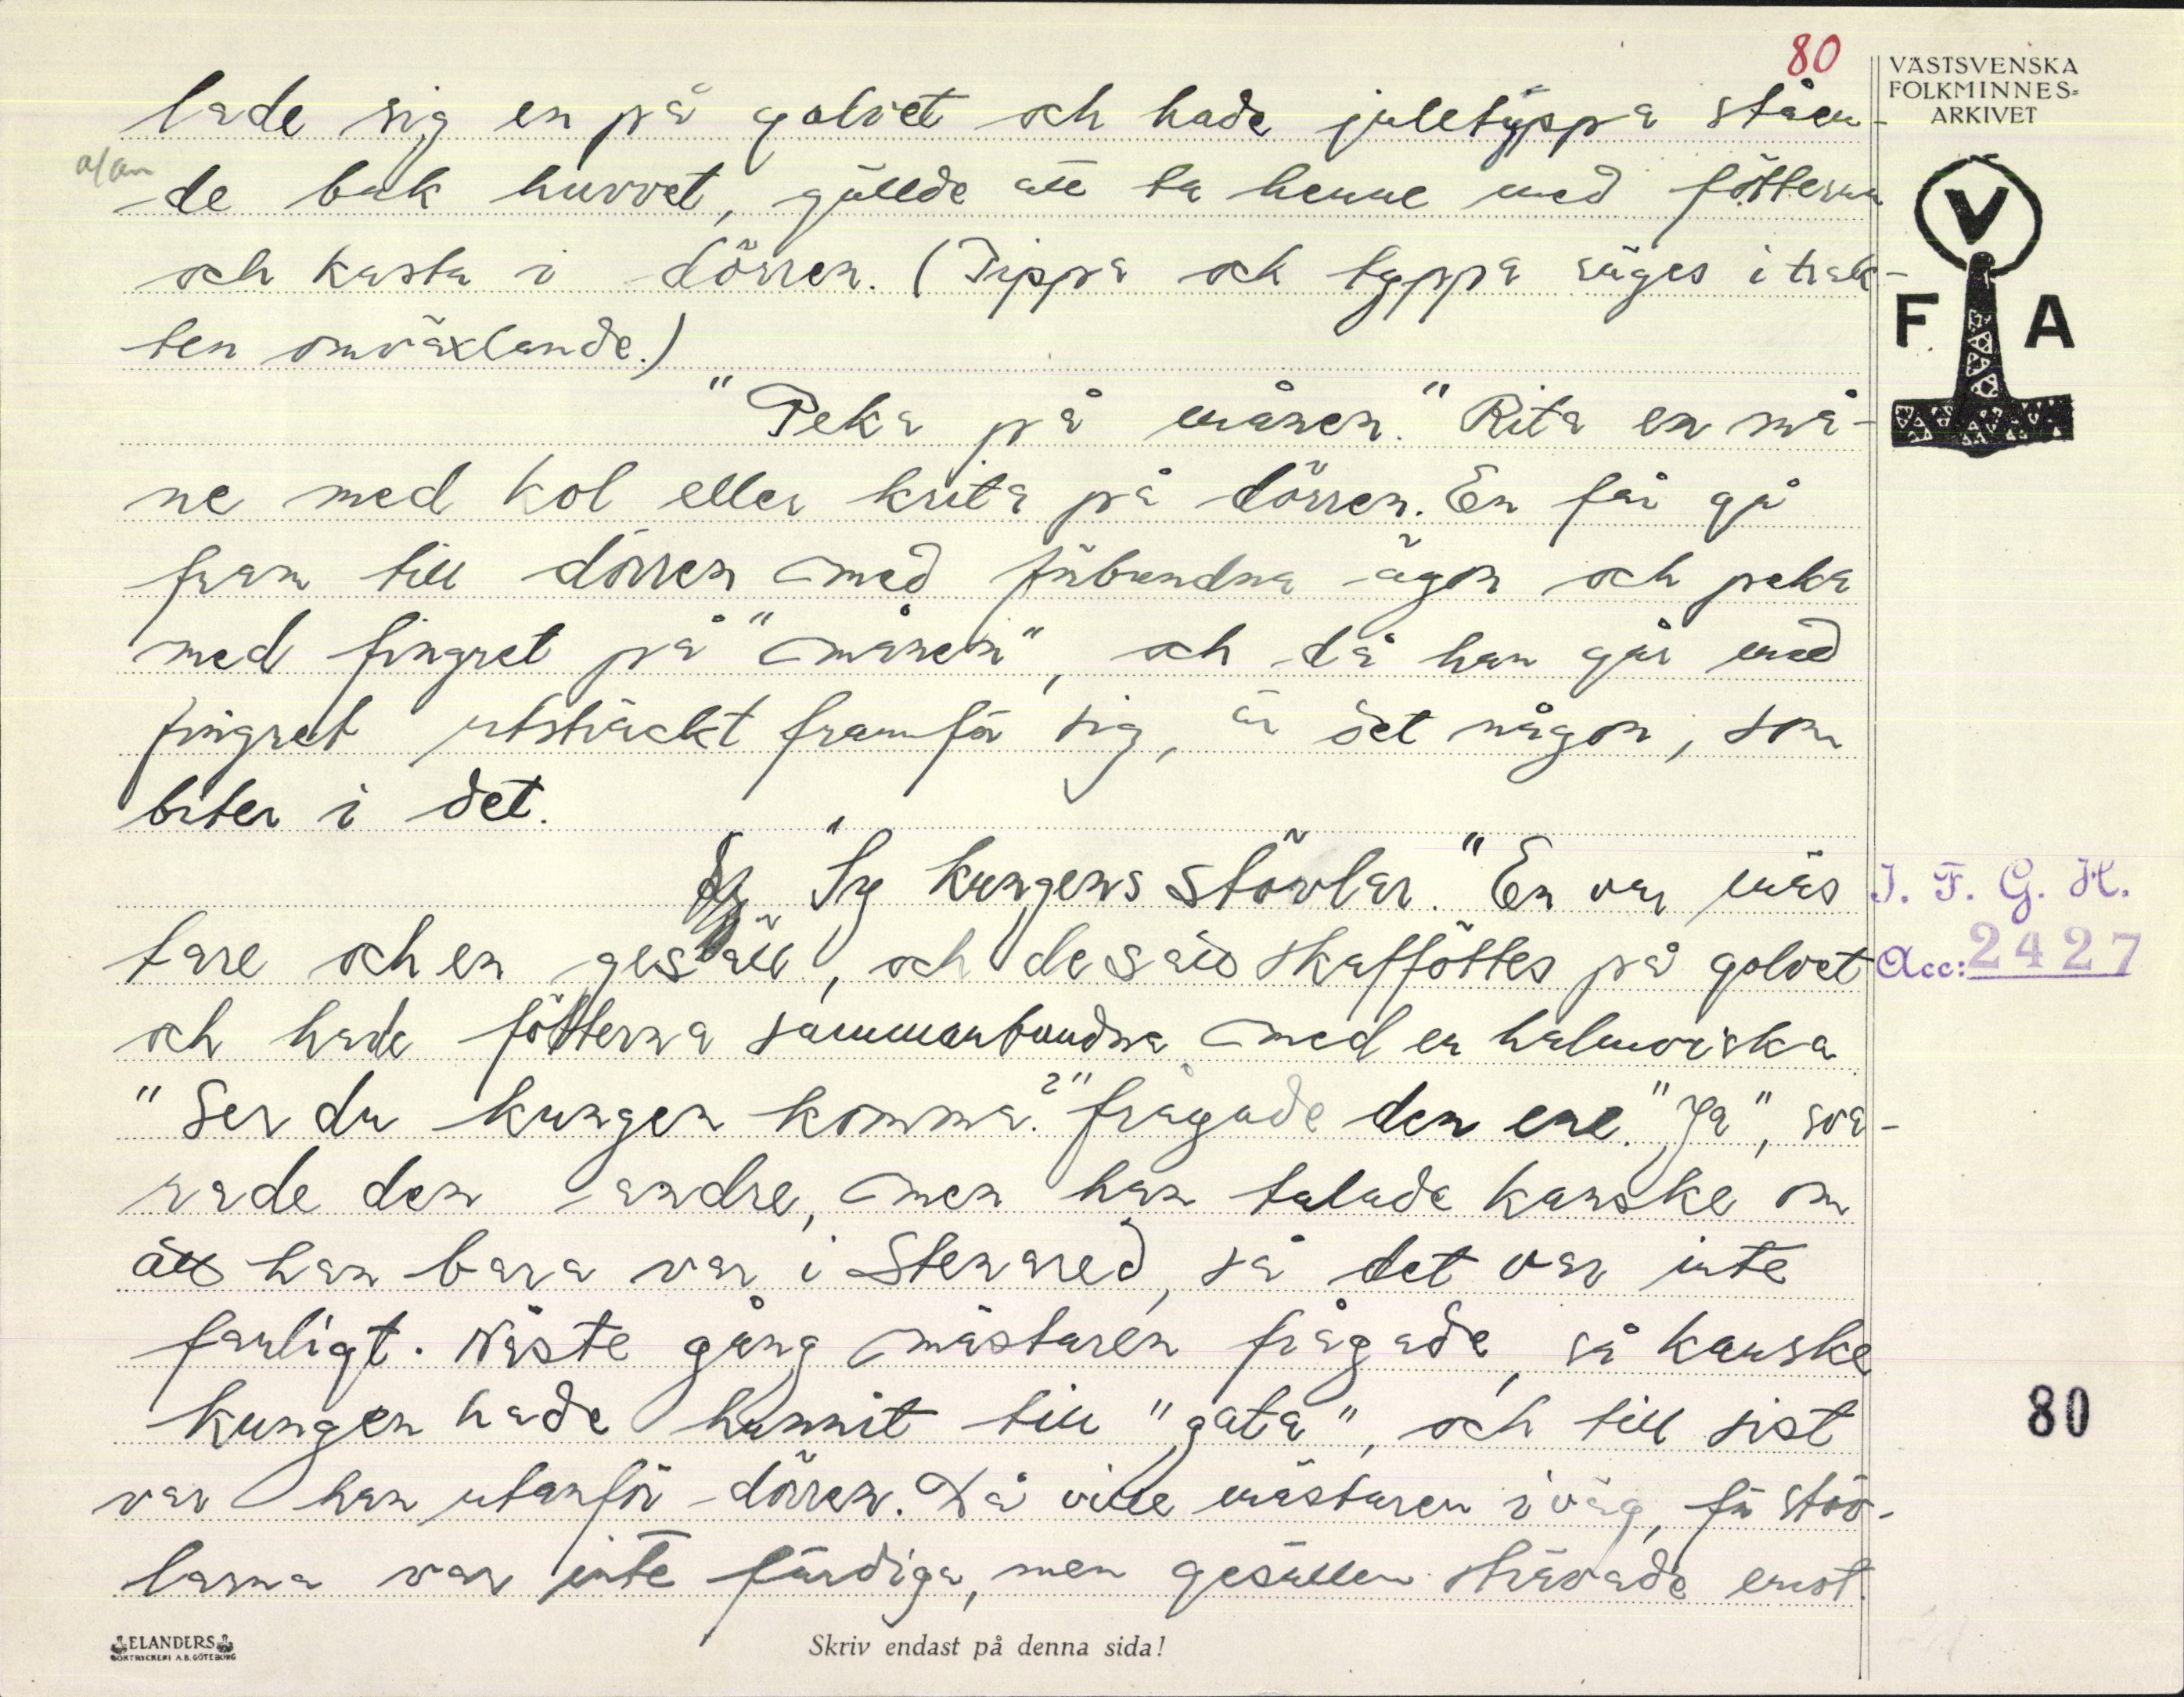 80
VÄSTSVENSKA
FOLKMINNES=
ARKIVET
lade sig en på golvet och hade juletyppa ståen-
de bak huvvet, gällde att ta henne med fötterna
och kasta i dörren. (Tippa och typpa säges i trak-
ten omväxlande.)
"Peka på månen." Rita en må-
ne med kol eller krita på dörren. En får gå
fram till dörren med förbundna ögon och peka
med fingret på "månen", och då han går med
fingret utsträckt framför sig, är det någon, som
biter i det.
"Sy kungens stövlar." En var mäs
tare och en gesäll, och de satt skafföttes på golvet
och hade fötterna sammanbundna med en halmviska
"Ser du kungen komma?" frågade den ene. "Ja", sva-
rade den andre, men han talade kanske om
att han bara var i Stenared, så det var inte
farligt. Näste gång mästaren frågade, så kanske
kungen hade hunnit till "gata", och till sist
var han utanför dörren. Då ville mästaren iväg, för stöv-
larna var inte färdiga, men gesällen strävade emot.
V
F A
I. F. G. H.
Acc: 2427
80
ELANDERS
BOKTRYCKERI A.B. GÖTEBORG
Skriv endast på denna sida!